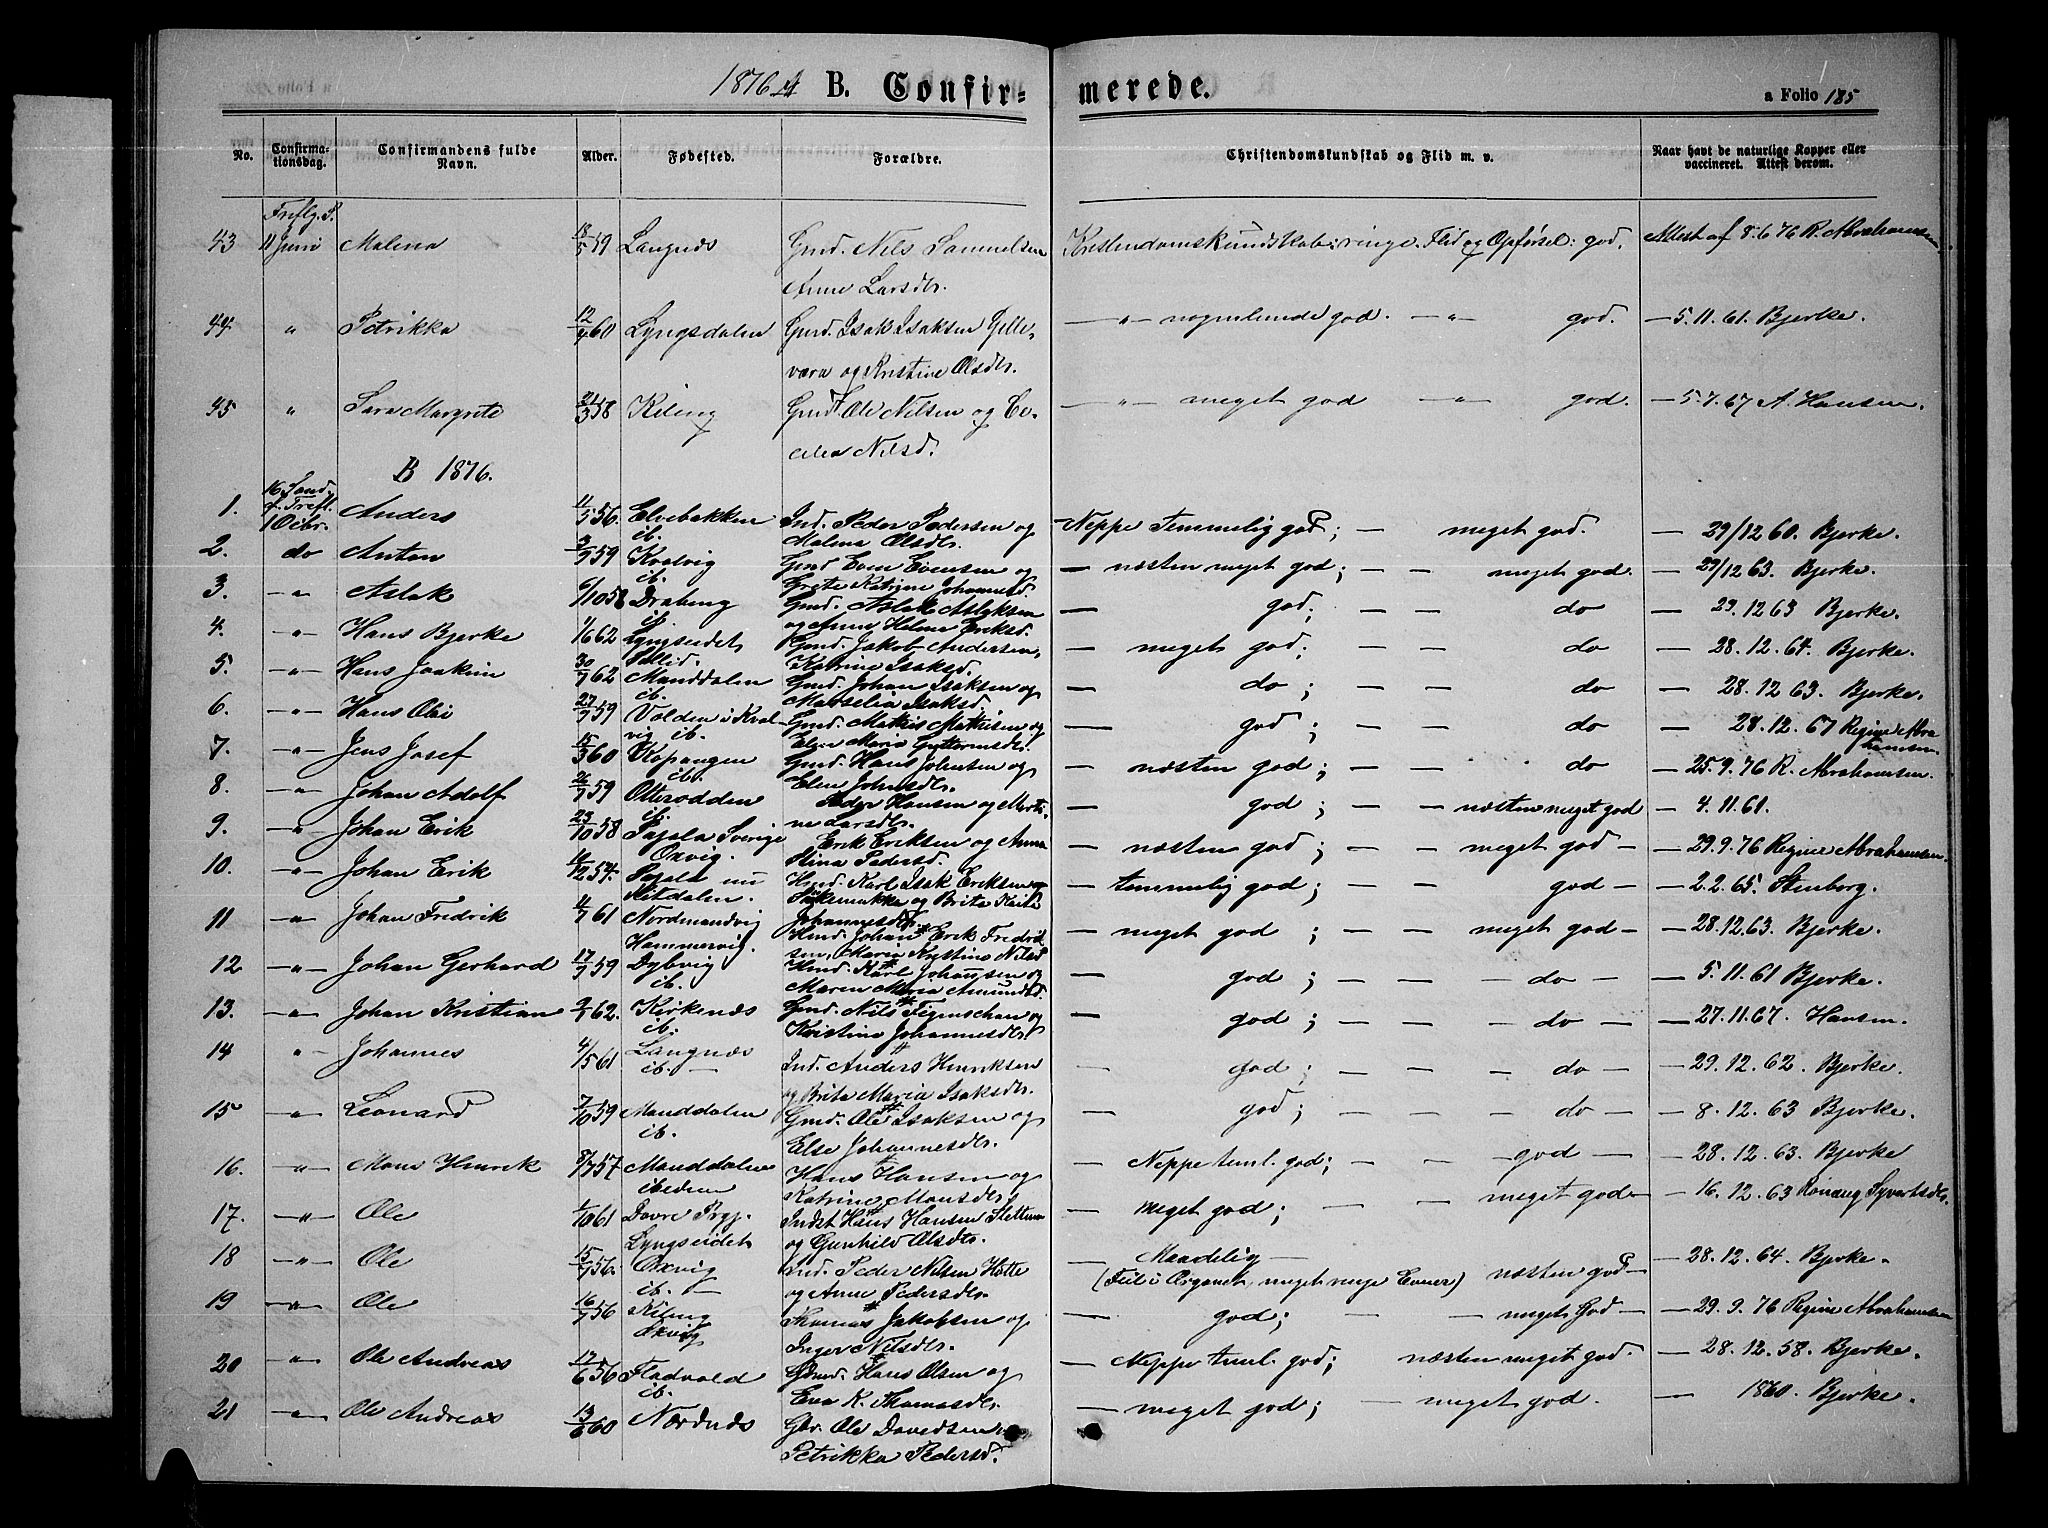 1876 A B. Confir- merede. a Folio 185
No. Confirma-tionsdag. Confirmandens fulde Navn. Alder. Fødested. Forældre. Christendomskundskab og Flid m. v. Naar havt de naturlige Kopper eller vaccineret. Attest derom.
43 11 Juni Malena 18/5 59 Langnæs Gmd. Nils Samuelsen Kristendomskundskab: ringe. Flid og Opførsel: god. Attest af 8.6 76 R. Abrahamsen
Anne Larsdtr.
44 " Petrikka 12/4 60 Lyngsdalen Gmd. Isak Isaksen Gelle- — " — nogenlunde god. — " — god. — 5.11.61. Bjerke.
vara og Kristine Olsdtr.
45 " Sara Margrete 21/3 58 Kileng Gmd. Ole Nilsen og Ce- — " — meget god — " — god. — 5.7.67 A. Hansen.
cilia Nilsd.
B 1876.
16 Sønd.
1. f. Trefl. Anders 11/5 56. Elvebakken Ind. Peder Pedersen og Neppe temmelig god; — meget god. — 29/12 60. Bjerke.
1 Octbr. ib. Malena Olsdtr.
2. do Anton 3/9 59 Kvalvig Gmd Even Evensen og — næsten meget god; — — meget god. — 29/12 63. Bjerke.
ib. Grete Katrine Johannesd.
3. — " — Aslak 6/10 58 Draleng Gmd. Aslak Aslaksen — god; — — do — 29.12 63 Bjerke.
ib. og Anne Helene Eriksd.
4. — " — Hans Bjerke 1/6 62 Lyngseidet Gmd. Jakob Andersen, — meget god; — — do — 28.12.64. Bjerke.
Katrine Isaksd.
5. — " — Hans Joakim 30/7 62 Manddalen Gmd. Johan Isaksen og — do; — — do — 28.12 63. Bjerke.
ib. Marselia Isaksd.
6. — " — Hans Olai 27/9 59 Volden i Kval- Gmd. Mathis Mathisen og — god; — — do — 28.12.67 Regine Abra
vig ib. Elen Maria Guttormsdtr. hamsen.
7. — " — Jens Josef 15/3 60 Kopangen Gmd. Hans Johnsen og — næsten god; — — do — 25.9.76 R. Abrahamsen.
ib. Elen Johnsdtr.
8. — " — Johan Adolf 26/7 59 Otterodden Peder Hansen og Marti- — god; — — næsten meget god — 4.11.61.
ib. ne Larsdtr.
9. — " — Johan Erik 23/10 58 Pajala Sverige Erik Eriksen og Anna — næsten god; — — meget god — — 29.9.76 Regine Abrahamsen.
Oxvig. Stina Pedersd.
10. — " — Johan Erik 16/12 54. Pajala nu Hmd. Karl Isak Eriksen og — temmelig god; — — god — — 2.2.65. Stenborg.
Kitdalen. og Brita Kaisa
11 — " — Johan Fredrik 4/7 61 Nordmandvig Johannesdtr. — meget god; — — meget god — — 28.12.63. Bjerke.
Hammervig. Hmd. Johan Erik Fredrik
sen, Maria Kristine Nilsd
12 — " — Johan Gerhard 17/7 59 Dybvig Hmd. Karl Johansen og — god; — — do — — 5.11.61 Bjerke.
ib. Maren Maria Amundsd.
13. — " — Johan Kristian 2/1 62. Kirkenæs Gmd. Nils Figenschau og — god; — — do — — 27.11.67. Hansen.
ib. Kristine Johannesdtr.
14 " — Johannes 4/5 61 Langnæs Ind. Anders Henriksen — god; — — do — — 29.12.62. Bjerke.
ib. — og Brita Maria Isaksdtr.
15 " Leonard 7/10 59 Manddalen Gmd. Ole Isaksen og — god; — — do — — 8.12.63 Bjerke.
ib. Else Johannesdtr.
16. — " — Mons Henrik 8/7 57 Manddalen Hans Hansen og — Neppe teml. god; — — god — — 28.12.63. Bjerke
ibidem Katrine Monsdtr.
17. — " — Ole 1/10 61 Dovre Prgj. Indst Hans Hansen Sletten — meget god; — meget god — — 16.12.63 Rønaug Syvertsdtr.
Lyngseidet og Gunhild Olsdtr.
18 — " — Ole 15/7 56. Oxvig Ind. Peder Nilsen Hatte — Maadelig — næsten god — — 28.12.64. Bjerke.
ib. — og Anne Pedersdtr. (Feil i Organet meget ringe Evner)
19 — " — Ole 16/7 56 Kileng Thomas Jakobsen og — god; — — meget God — — 29.9.76 Regine Abrahamsen
Oxvig Inger Nilsdtr.
20 " — Ole Andreas 17/6 56 Fladvold Gmd. Hans Olsen og — Neppe teml. god; næsten meget god. — 28.12.58. Bjerke.
ib. Eva K. Thomasdtr
21 " — Ole Andreas 13/6 60 Nordnæs Gbr. Ole Davidsen og — meget god; — meget god. — 1860. Bjerke.
Petrikka Pedersd.